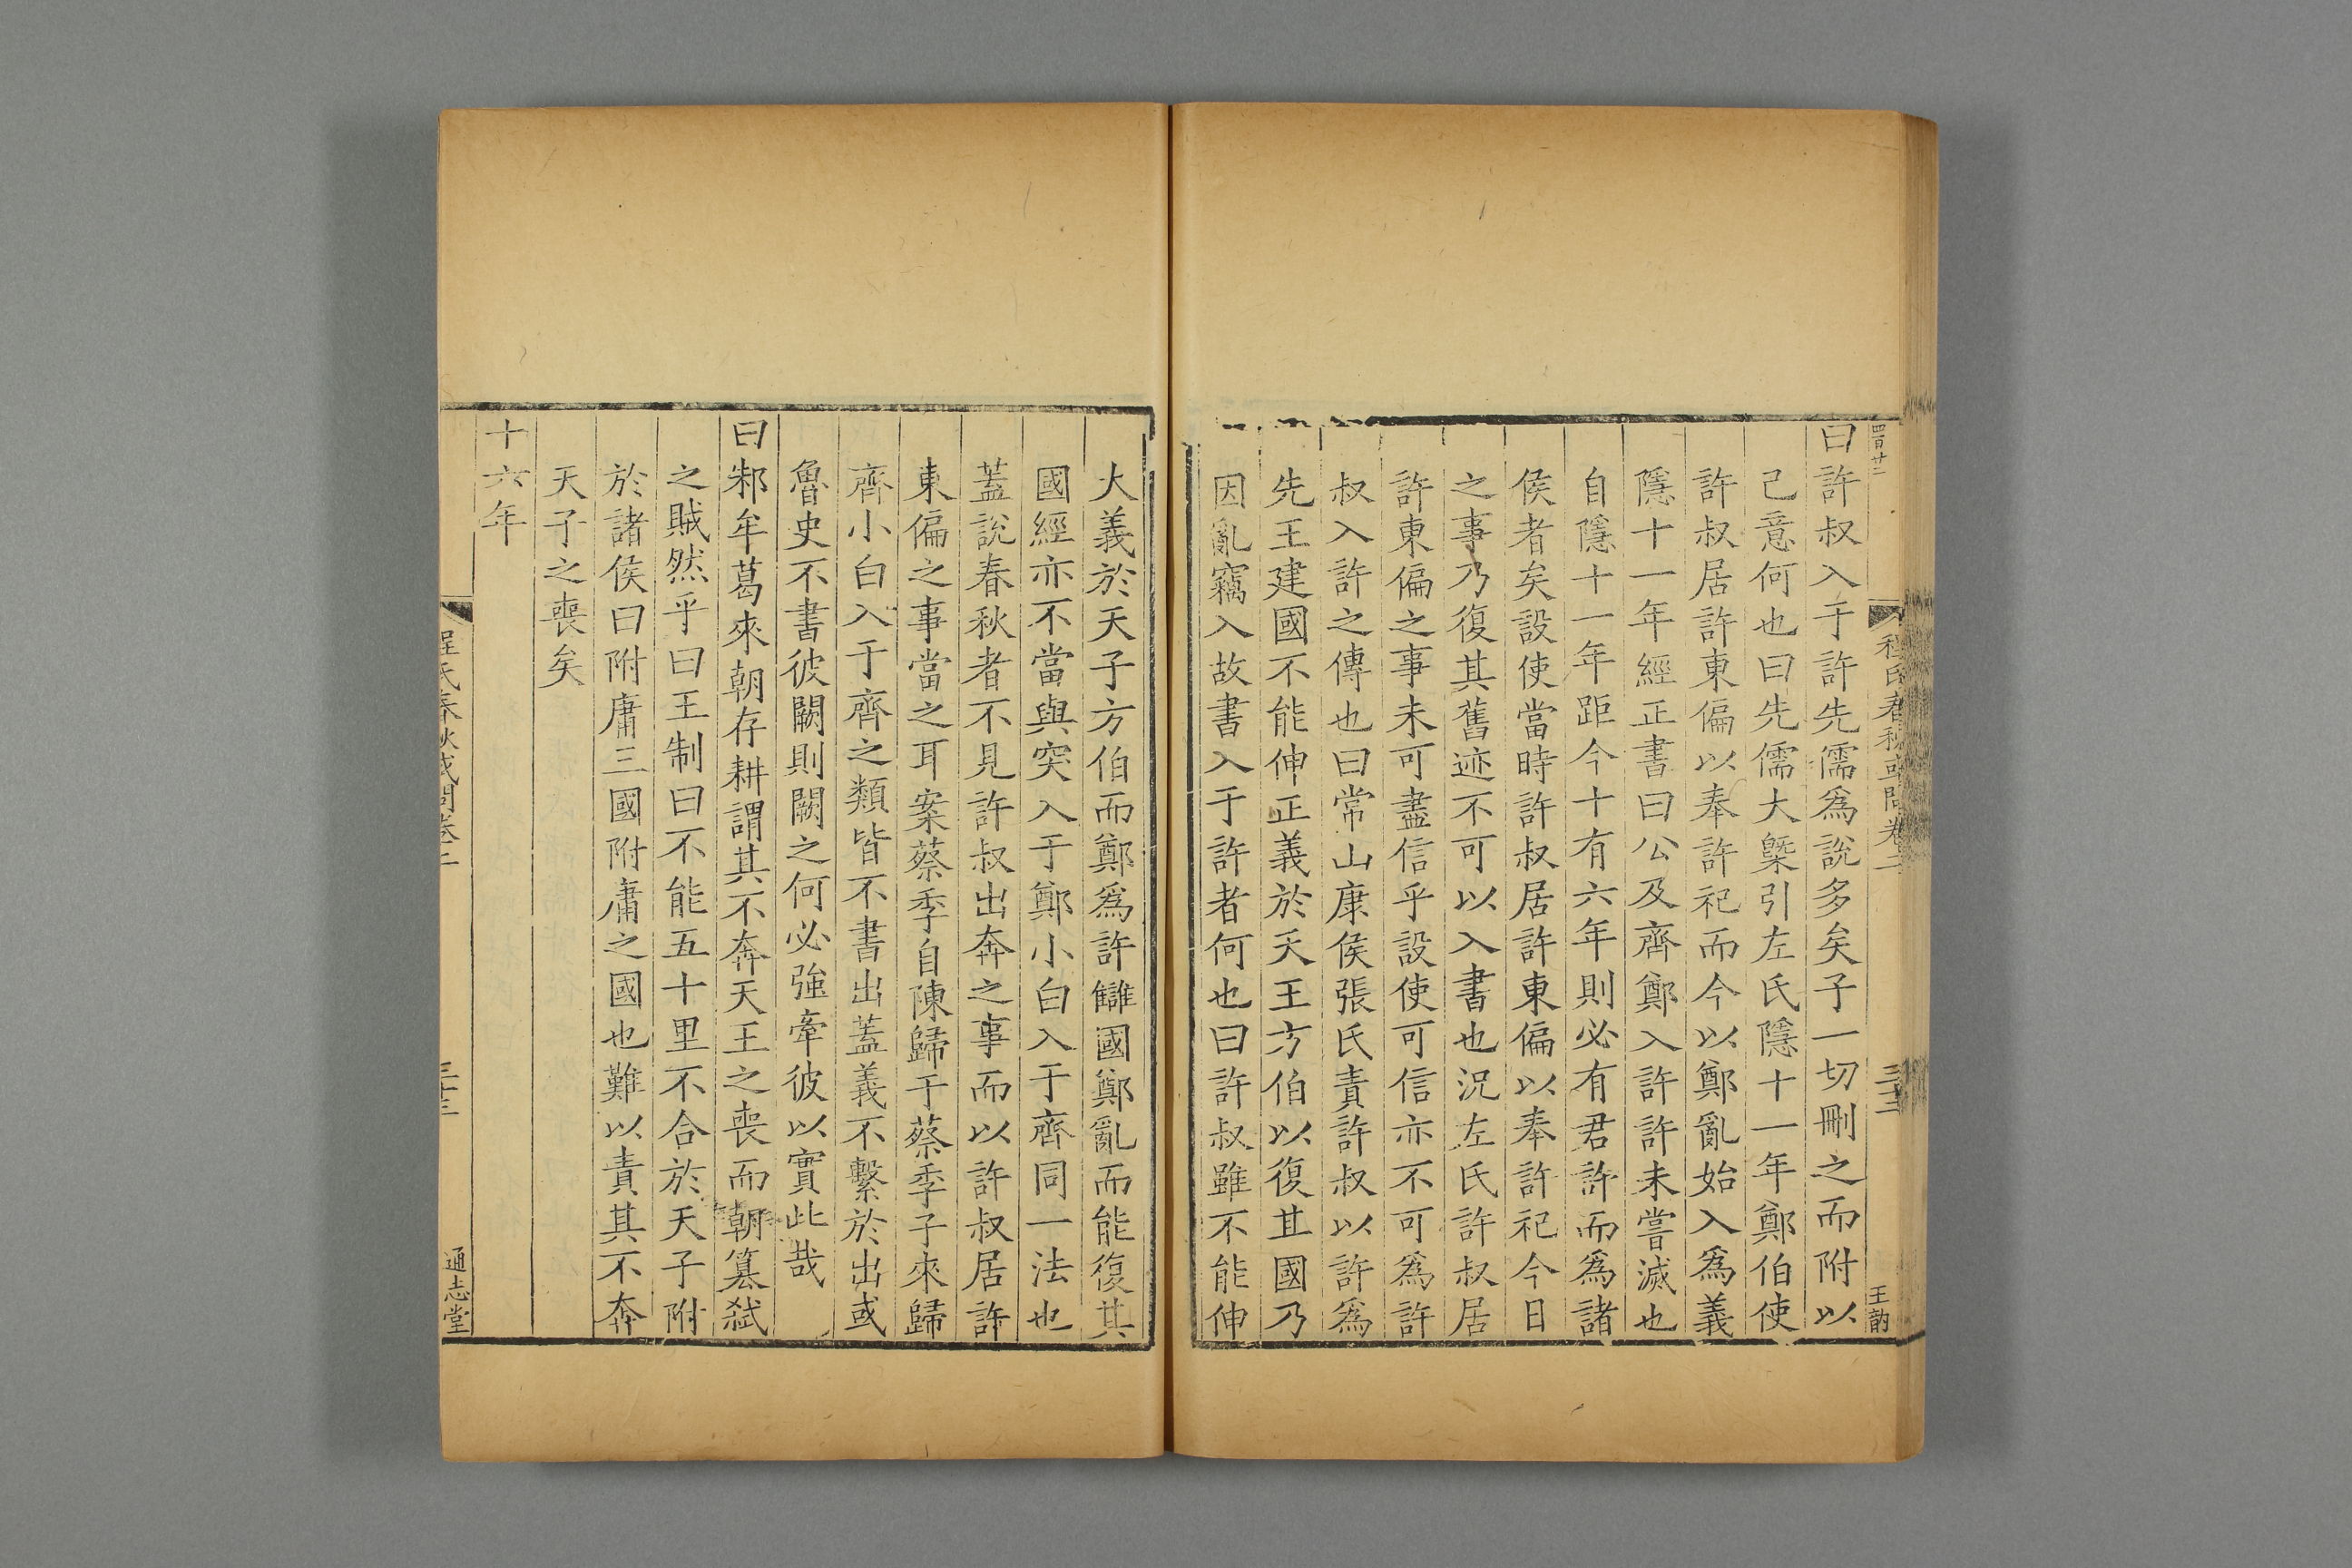 四百廿二
程氏春秋或問卷二
三十三
王韵
曰許叔入于許先儒爲說多矣子一切刪之而附以
己意何也曰先儒大槩引左氏隱十一年鄭伯使
許叔居許東偏以奉許祀而今以鄭亂始入爲義
隱十一年經正書曰公及齊鄭入許許未嘗滅也
自隱十一年距今十有六年則必有君許而爲諸
侯者矣設使當時許叔居許東偏以奉許祀今日
之事乃復其舊迹不可以入書也況左氏許叔居
許東偏之事未可盡信乎設使可信亦不可爲許
叔入許之傳也曰常山康侯張氏責許叔以許爲
先王建國不能伸正義於天王方伯以復其國乃
因亂竊入故書入于許者何也曰許叔雖不能伸
大義於天子方伯而鄭爲許讎國鄭亂而能復其
國經亦不當與突入于鄭小白入于齊同一法也
蓋說春秋者不見許叔出奔之事而以許叔居許
東偏之事當之耳案蔡季自陳歸于蔡季子來歸
齊小白入于齊之類皆不書出蓋義不繫於出或
魯史不書彼闕則闕之何必強牽彼以實此哉
曰邾牟葛來朝存耕謂其不奔天王之喪而朝篡弑
之賊然乎曰王制曰不能五十里不合於天子附
於諸侯曰附庸三國附庸之國也難以責其不奔
天子之喪矣
十六年
程氏春秋或問卷二
三十三
通志堂